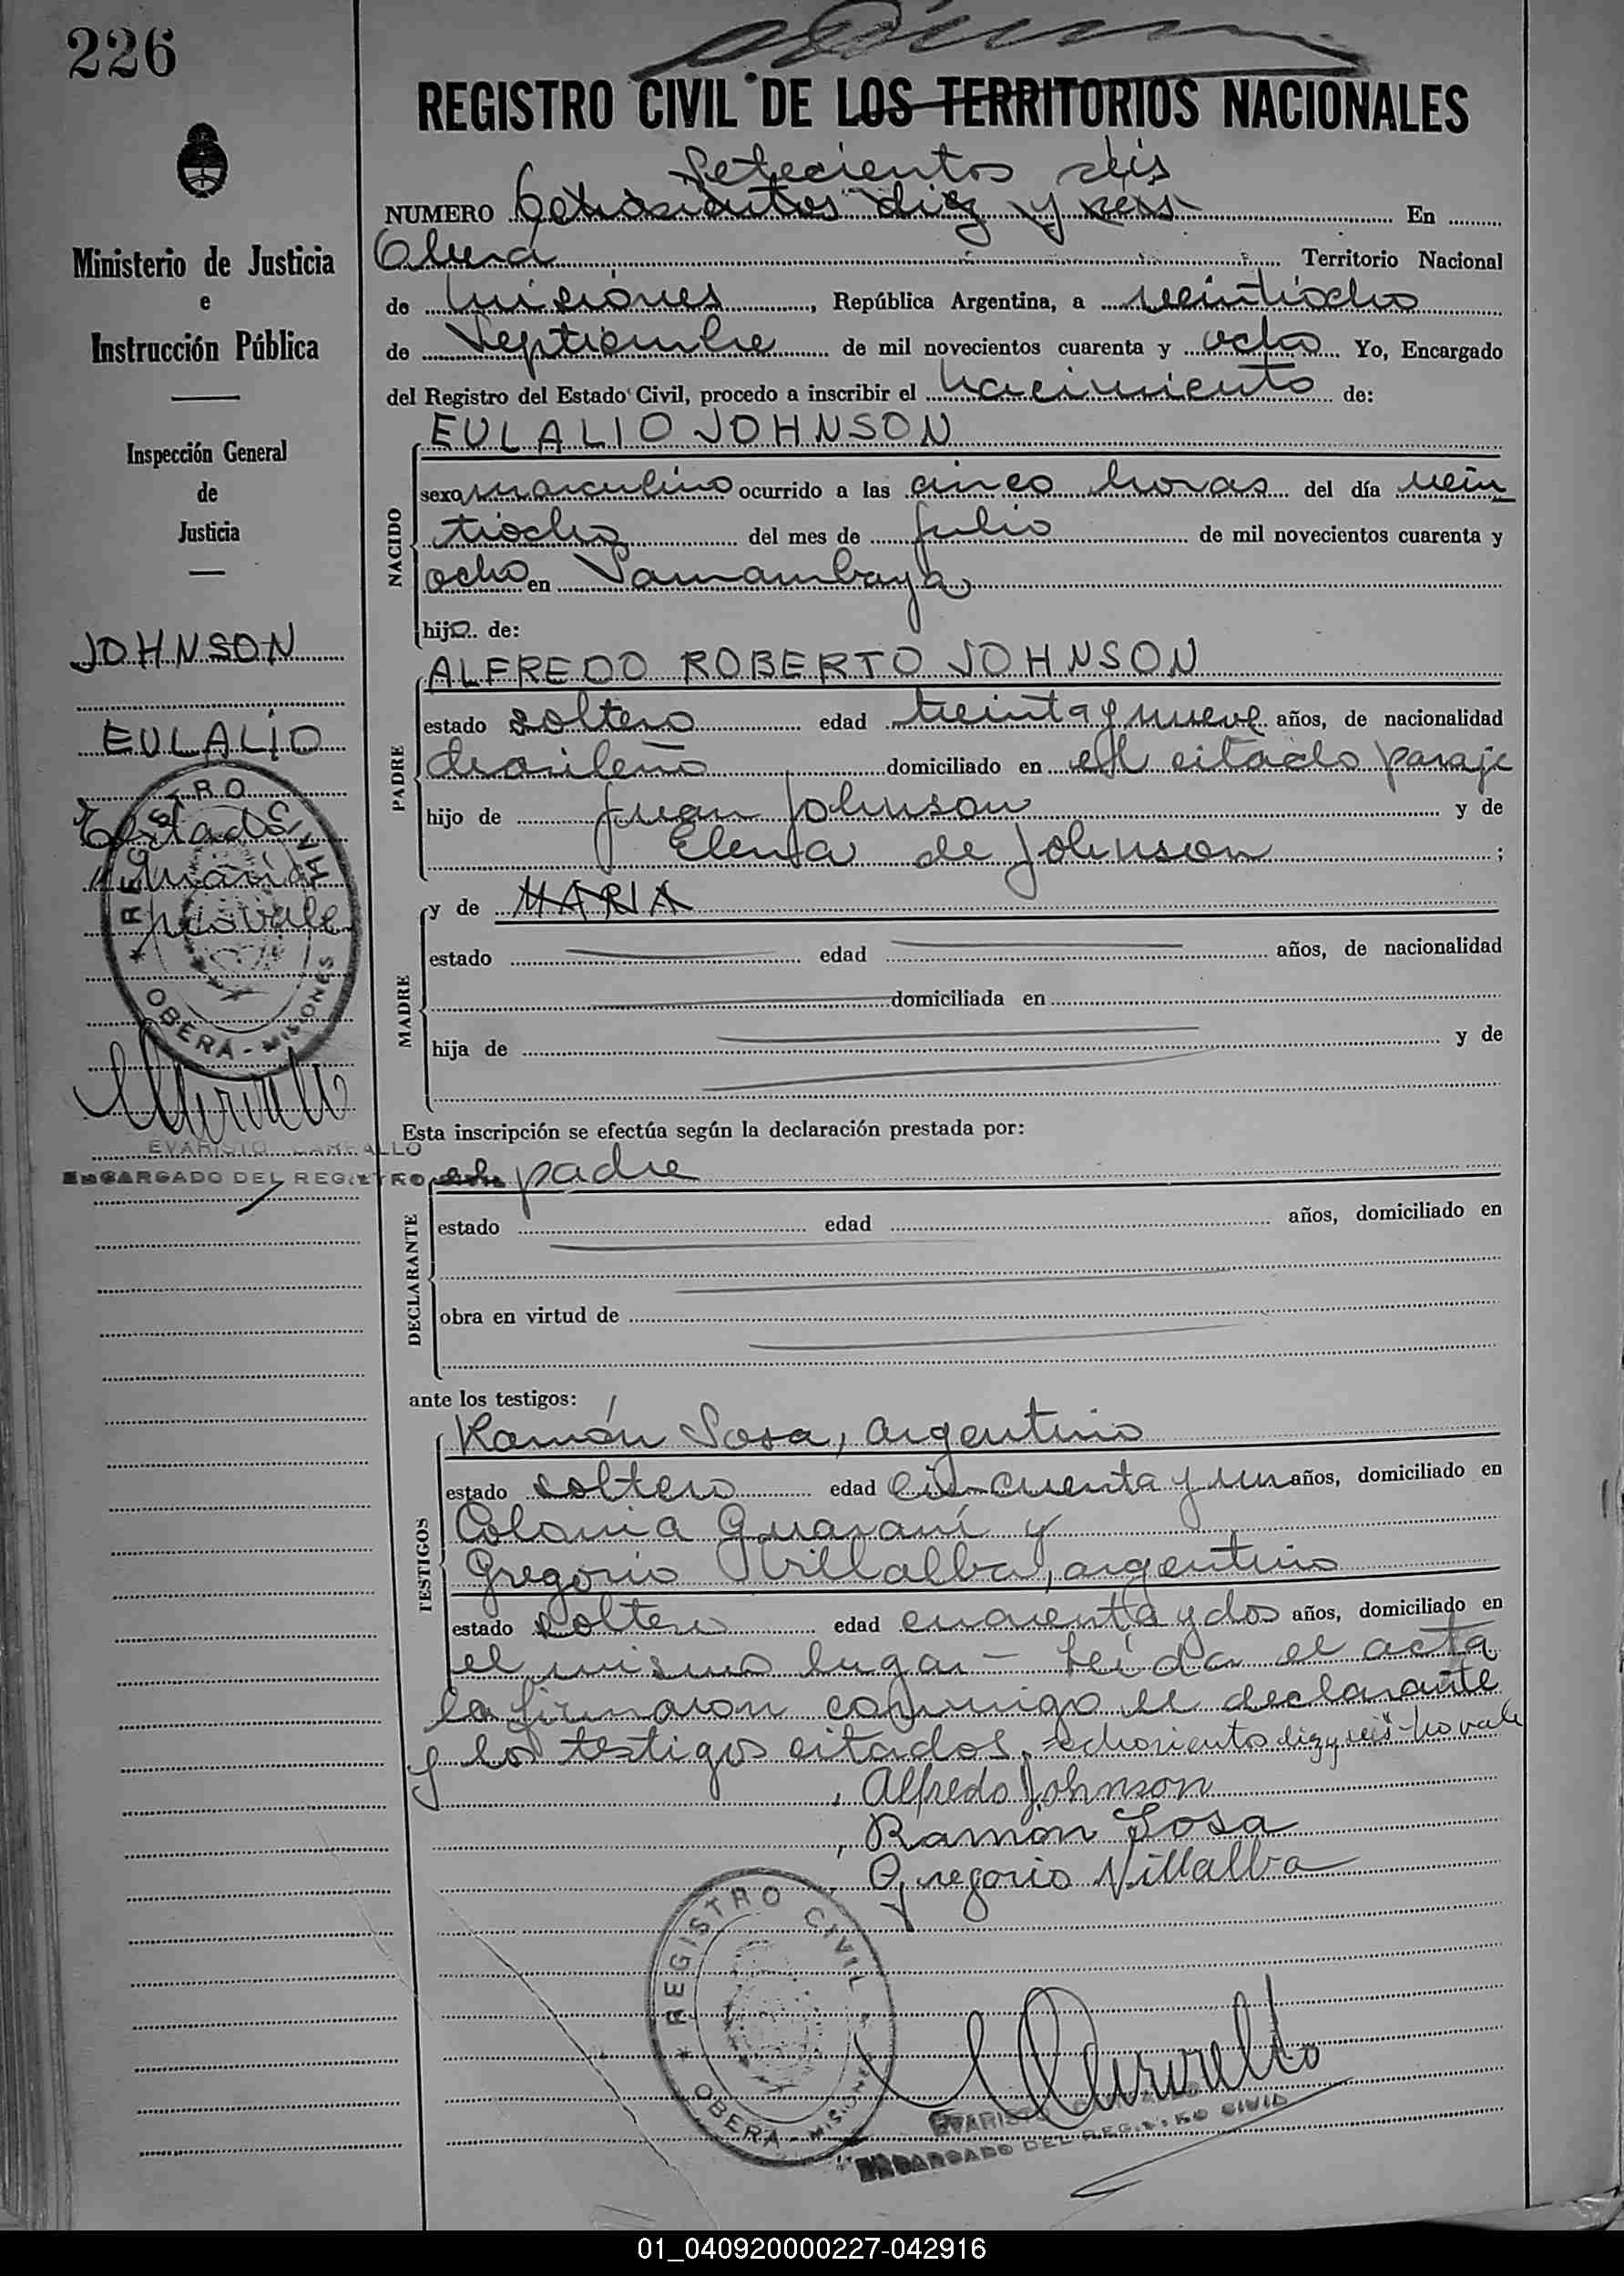 226
REGISTRO CIVIL DE LOS TERRITORIOS NACIONALES
Setecientos seis
NUMERO Ochosientos diez y seis En
Obera Territorio Nacional
de Misiones, República Argentina, a veintiocho
de Septiembre de mil novecientos cuarenta y ocho Yo, Encargado
del Registro del Estado Civil, procedo a inscribir el nacimiento de:
Ministerio de Justicia
e
Instrucción Pública
Inspección General
de
Justicia
JOHNSON
EULALIO
Testado
María
no vale
REGISTRO CIVIL
OBERA - MISIONES
EVARISTO
ENCARGADO DEL REGISTRO
NACIDO
EULALIO JOHNSON
sexo masculino ocurrido a las cinco horas del día vein
tiocho del mes de julio de mil novecientos cuarenta y
ocho en Samambaya
hijo de:
PADRE
ALFREDO ROBERTO JOHNSON
estado soltero edad treinta y nueve años, de nacionalidad
brasileño domiciliado en el citado paraje
hijo de Juan Johnson y de
Elena de Johnson ;
MADRE
y de MARIA
estado edad años, de nacionalidad
domiciliada en
hija de y de
Esta inscripción se efectúa según la declaración prestada por:
DECLARANTE
el padre
estado edad años, domiciliado en
obra en virtud de
ante los testigos:
TESTIGOS
Ramón Sosa, argentino
estado soltero edad cincuenta y un años, domiciliado en
Colonia Guaraní y
Gregorio Villalba, argentino
estado soltero edad cuarenta y dos años, domiciliado en
el mismo lugar - Leída el acta
la firmaron conmigo el declarante
y los testigos citados. - ochosientos diez y seis - no vale
Alfredo Johnson
Ramon Sosa
Gregorio Villalba
REGISTRO CIVIL
OBERA - MISIONES
EVARISTO
ENCARGADO DEL REGISTRO CIVIL
01_040920000227-042916